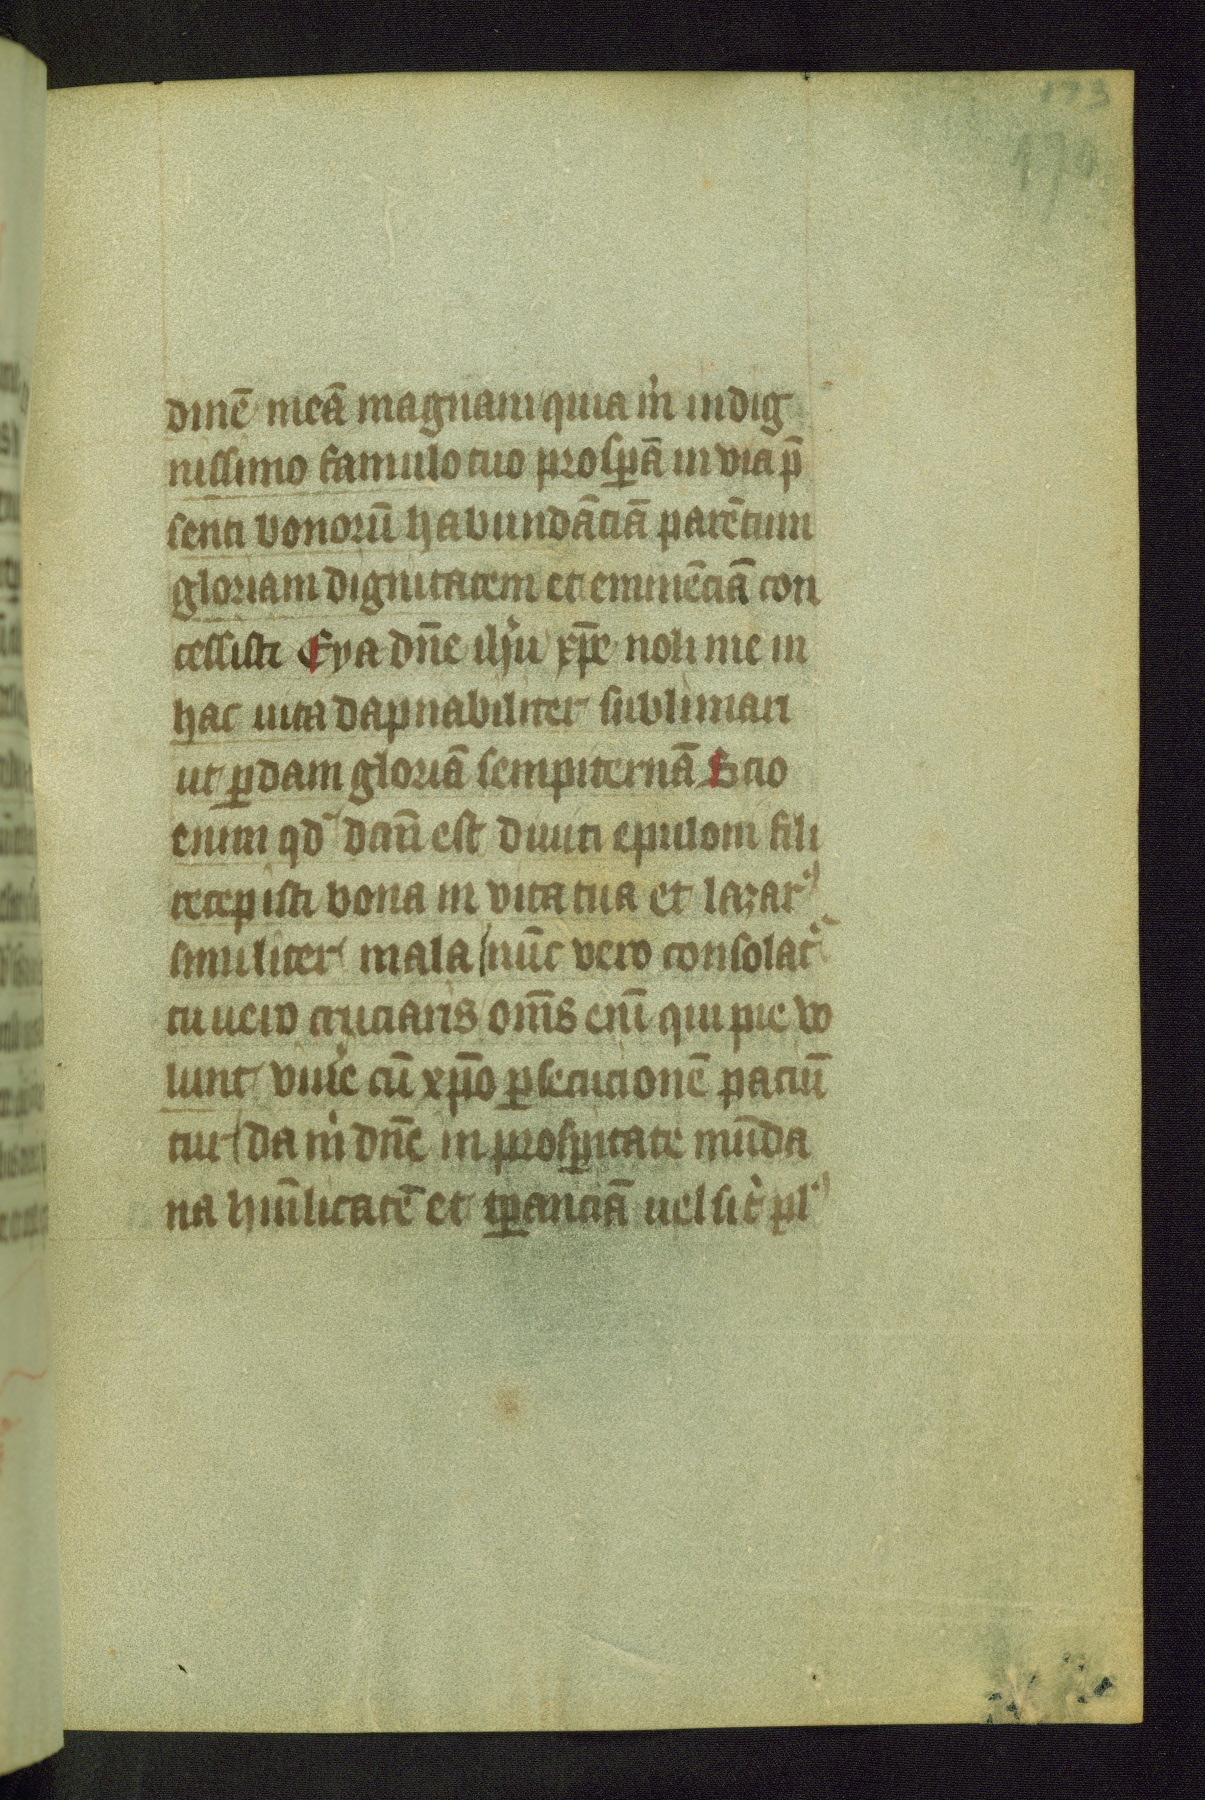 173
170
dinē meā magnam quia m̉ indig
nissimo famulo tuo prosꝑā in via p̄
senti bonorū habundāciā parētum
gloriam dignitatem et eminēciā con
cessisti Eya dn̄e ih̉u xp̄e noli me in
hac uita dapnabiliter sublimari
ut ꝑdam gloriā sempiternā Scio
enim qd̓ dcm̄ est diuiti epuloni fili
recepisti bona in vita tua et lazarꝰ
similiter mala nūc vero consolat᷑
tu uero cruciaris om̄s enī qui pie vo
lunt viu̓e cū xp̄o ꝑsecucionē paciū
tur da m̉ dn̄e in prosꝑitate mūda
na humīlitatē et tꝑanciā uel sit̉ pl̓